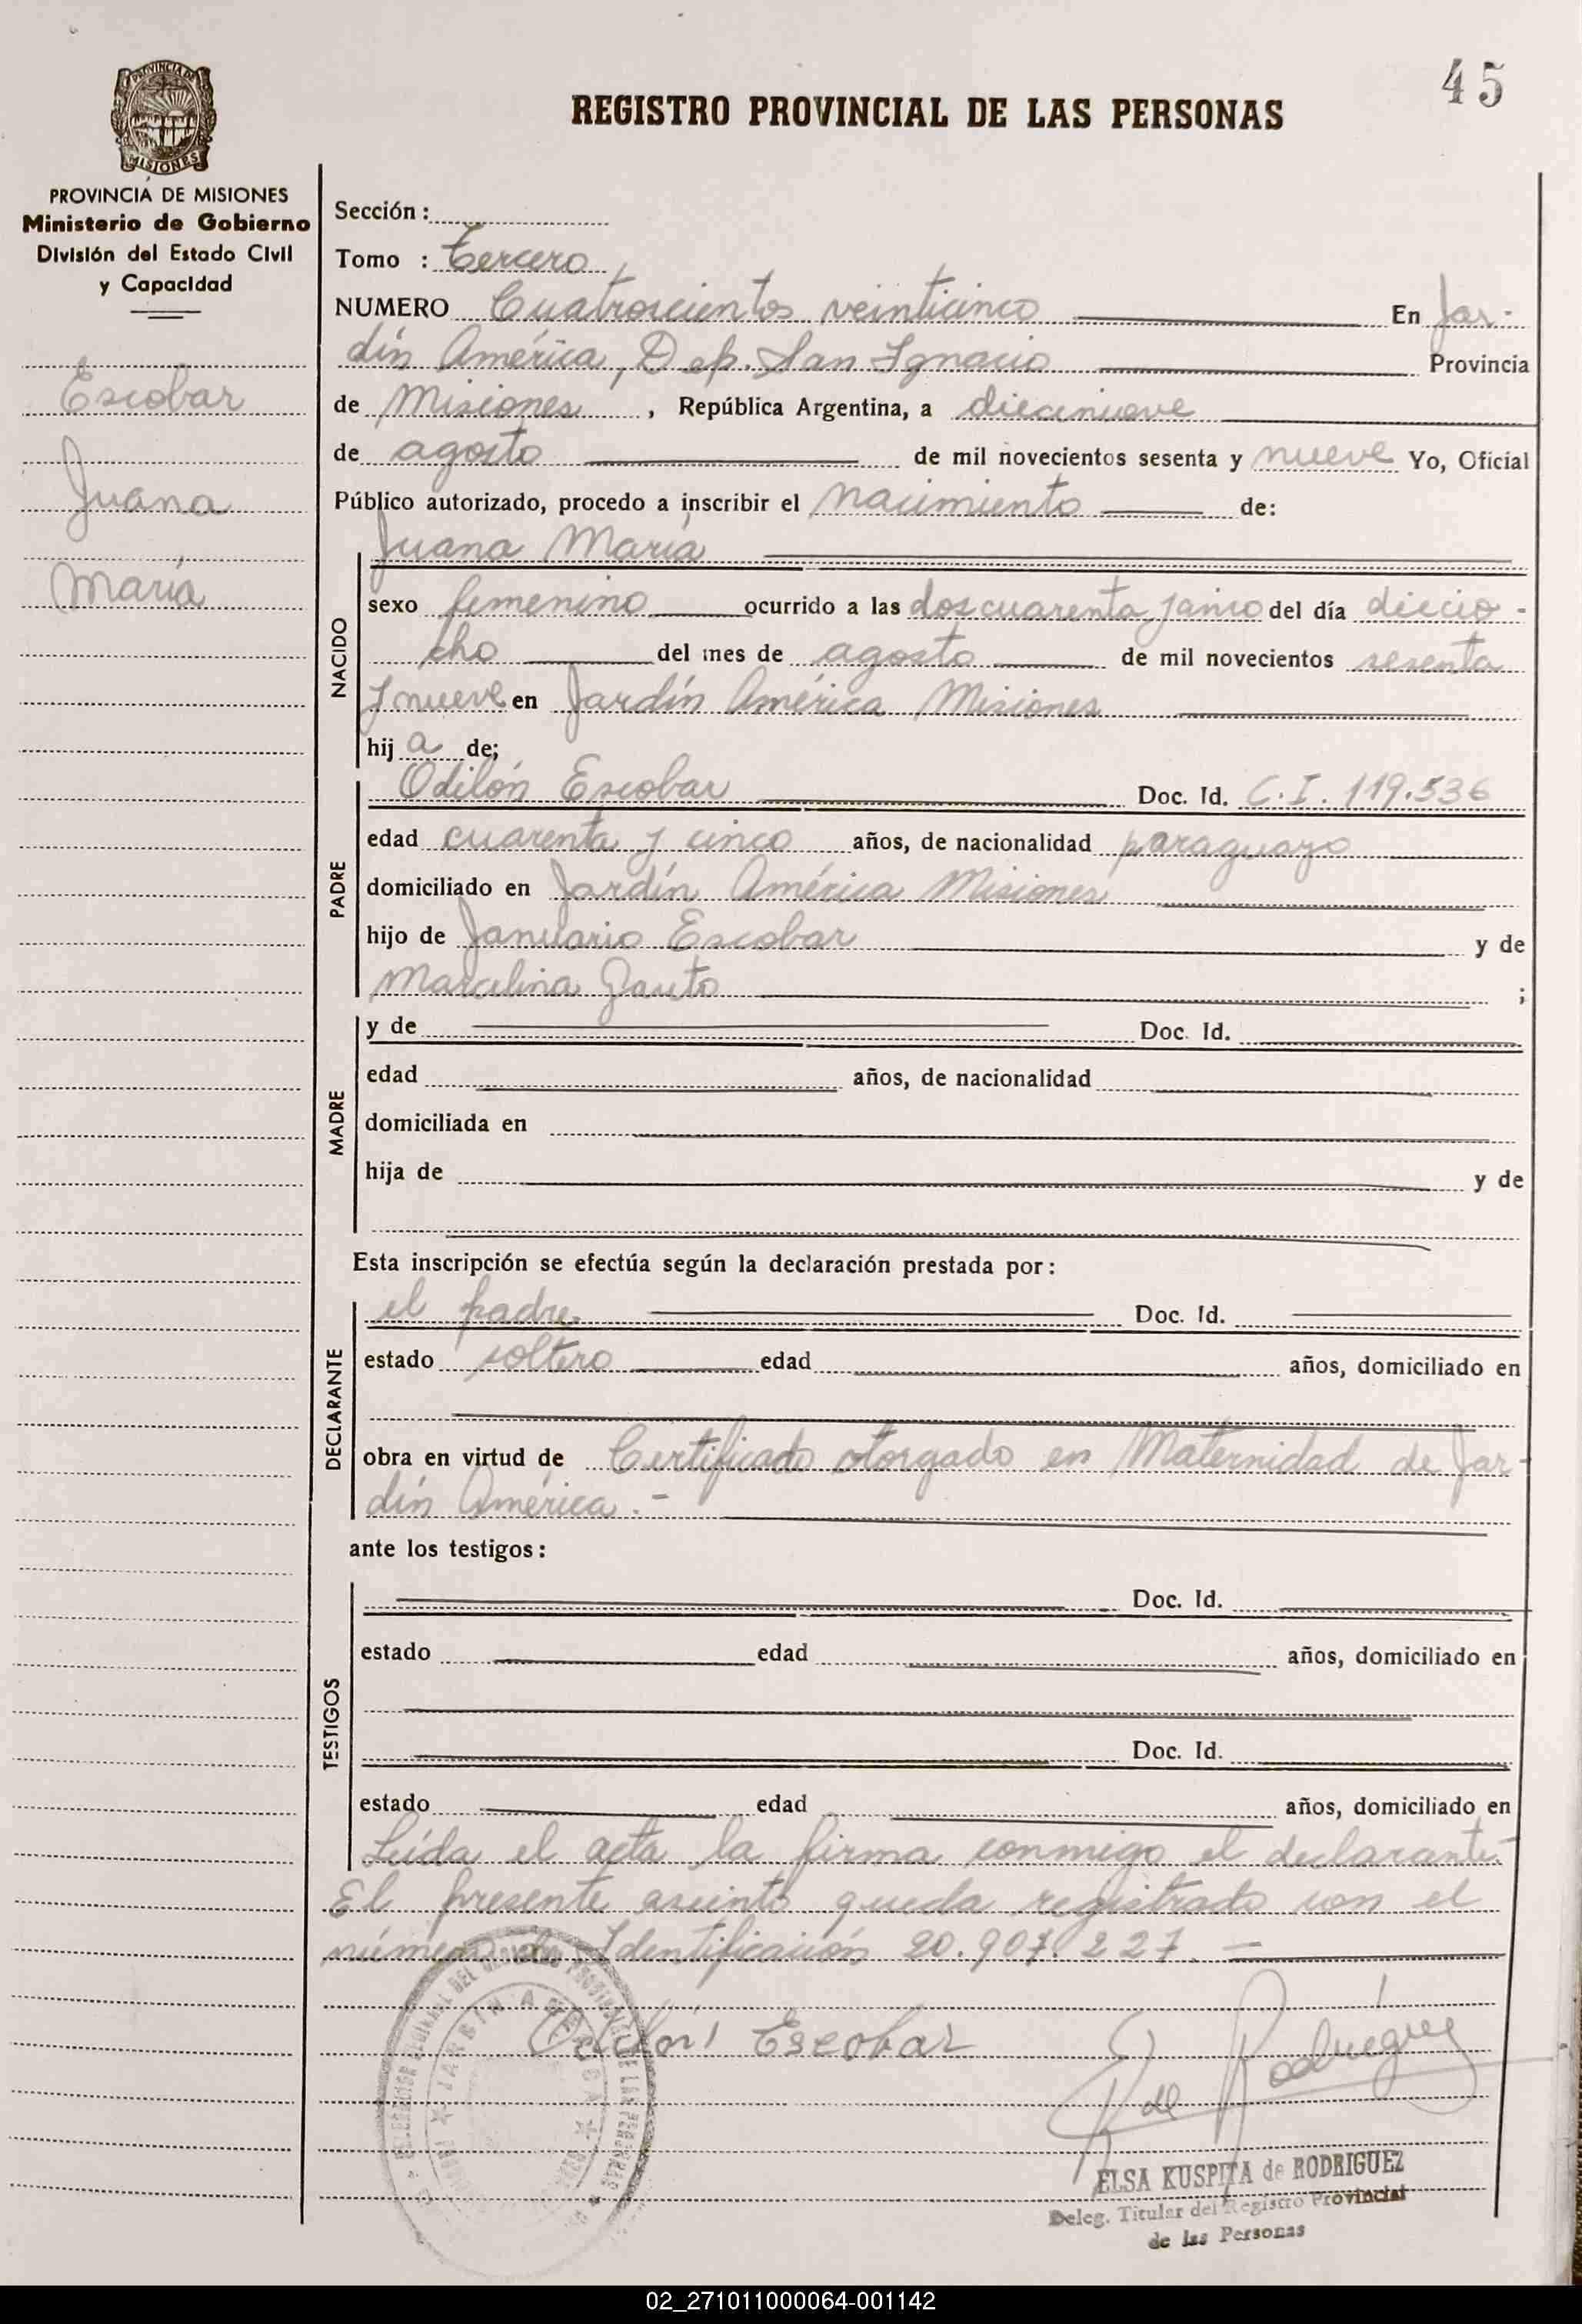 45
REGISTRO PROVINCIAL DE LAS PERSONAS
PROVINCIA DE MISIONES
PROVINCIA DE MISIONES
Ministerio de Gobierno
División del Estado Civil
y Capacidad
Escobar
Juana
María
Sección:
Tomo : Tercero
NUMERO Cuatroscientos veinticinco En Jar-
dín América, Dep. San Ignacio Provincia
de Misiones , República Argentina, a diecinueve
de agosto de mil novecientos sesenta y nueve Yo, Oficial
Público autorizado, procedo a inscribir el nacimiento de:
NACIDO
Juana María
sexo femenino ocurrido a las dos cuarenta y cinco del día diecio-
cho del mes de agosto de mil novecientos sesenta
y nueve en Jardín América Misiones
hij a de;
PADRE
Odilón Escobar Doc. Id. C.I. 119.536
edad cuarenta y cinco años, de nacionalidad paraguayo
domiciliado en Jardín América Misiones
hijo de Escobar y de
Marcelina Gauto ;
MADRE
y de Doc. Id.
edad años, de nacionalidad
domiciliada en
hija de y de
Esta inscripción se efectúa según la declaración prestada por:
DECLARANTE
el padre. Doc. Id.
estado soltero edad años, domiciliado en
obra en virtud de Certificado otorgado en Maternidad de Jar-
dín América.-
ante los testigos:
TESTIGOS
Doc. Id.
estado edad años, domiciliado en
Doc. Id.
estado edad años, domiciliado en
Leída el acta la firma conmigo el declarante.-
El presente asiento queda registrado con el
número de Identificación 20.907.227.-
Odilón Escobar
E K de Rodríguez
JARDIN AMERICA
ELSA KUSPITA de RODRIGUEZ
Deleg. Titular del Registro Provincial
de las Personas
02_271011000064-001142